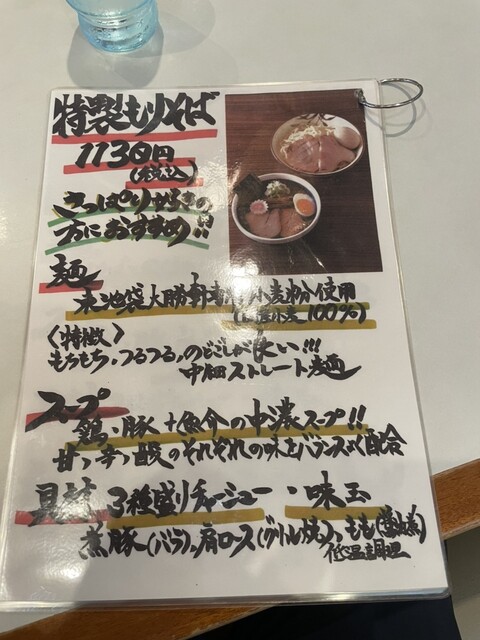 特製もりそば
1130円
(税込)
さっぱり好きの
方におすすめ!!
麺
東池袋大勝軒 小麦粉使用
小麦100%)
〈特徴〉
もちもち、つるつる、のどごしが良い!!!
中細ストレート麺
スープ
鶏・豚+魚介の中濃スープ!!
甘・辛・酸のそれぞれの味をバランスよく配合
具材 3種盛りチャーシュー・味玉
煮豚(バラ)、肩ロース(グリル焼)、もも
低温調理